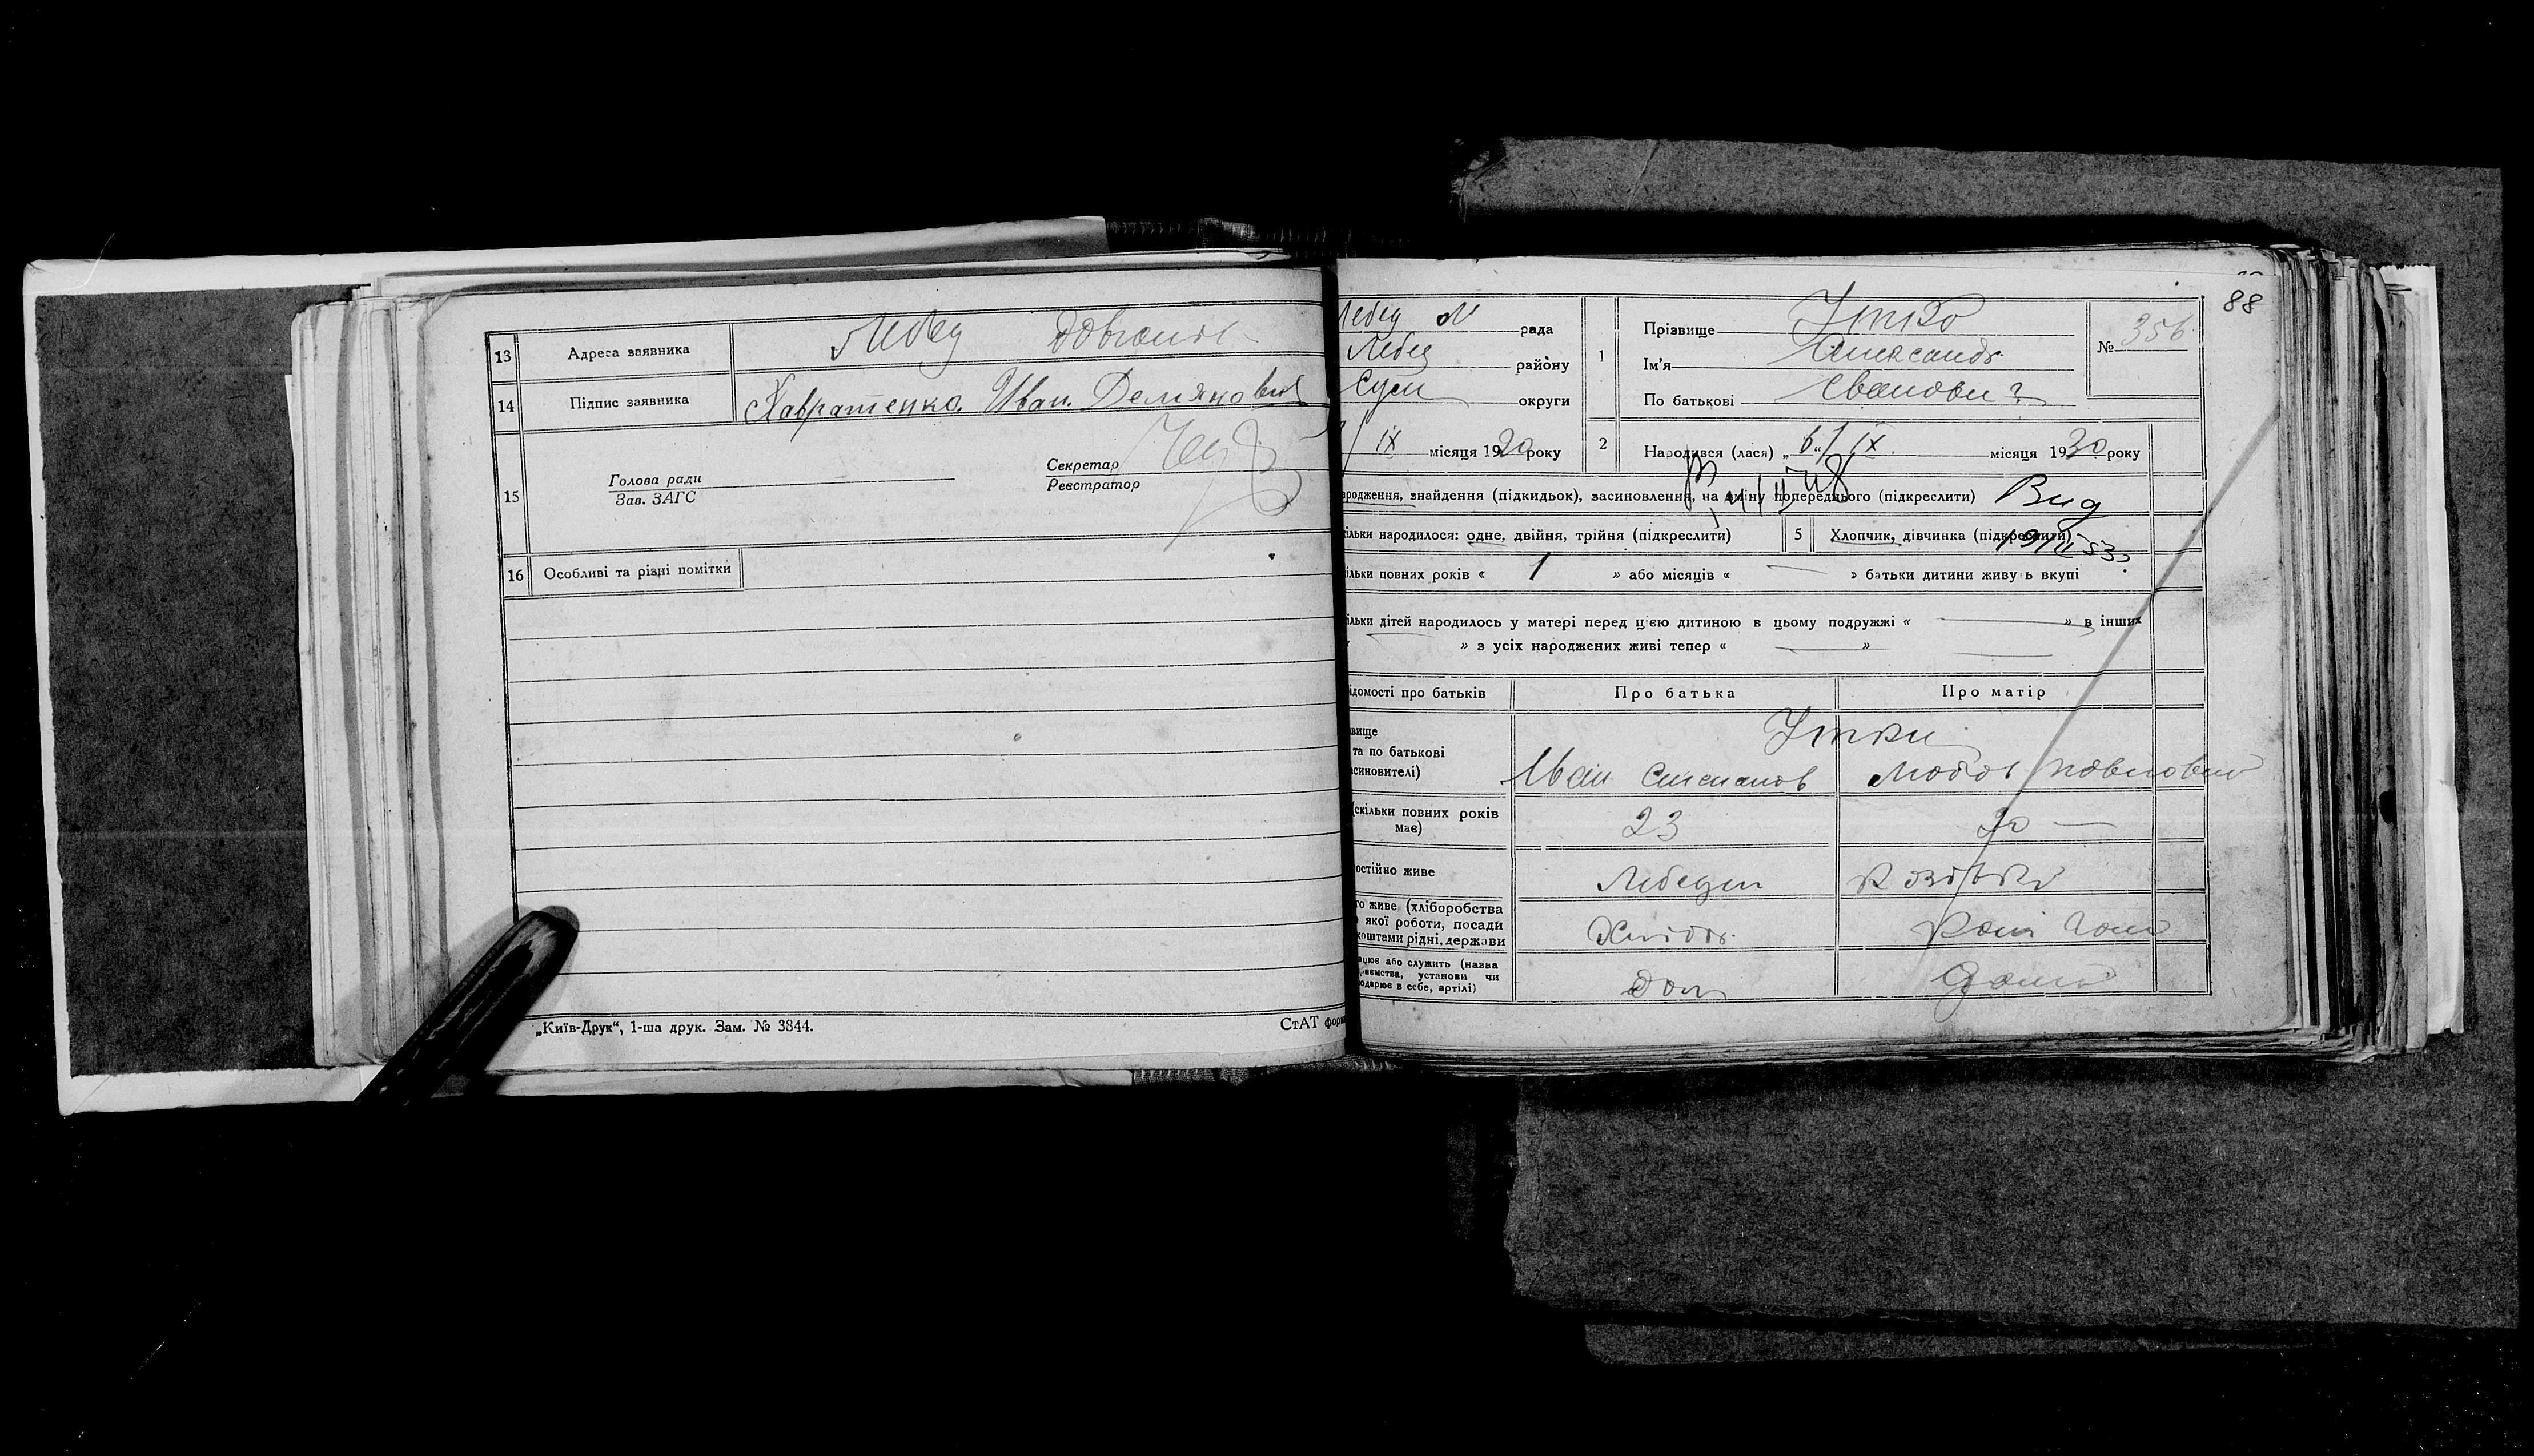 13 Адреса заявника Лебед
14 Підпис заявника Хавратенко. Иван. Демянович
15 Голова ради
Зав. ЗАГС
Секретар
Реєстратор
16 Особливі та різні помітки
„Київ-Друк“, 1-ша друк. Зам. № 3844.
СтАТ форм
88
Лебед М рада
Лебед району
Сум округи
IX місяця 1930 року
1 Прізвище Утко
Ім'я Александр
По батькові Иванович
№ 356
2 Народився (лася) „6“ IX місяця 1930 року
ародження, знайдення (підкидьок), засиновлення, на зміну попереднього (підкреслити) Вид
ільки народилося: одне, двійня, трійня (підкреслити) 5 Хлопчик, дівчинка (підкреслити)
ільки повних років « 1 » або місяців « — » батьки дитини живуть вкупі
ільки дітей народилось у матері перед цією дитиною в цьому подружжі « — » в інших
» з усіх народжених живі тепер « — »
ідомості про батьків Про батька Про матір
вище Утки
та по батькові
синовителі) Иван Степанов Любов Павловна
(скільки повних років
має) 23 20 —
остійно живе Лебедин
го живе (хліборобства
якої роботи, посади
коштами рідні, держави Хлібор.
цює або служить (назва
приємства, установи чи
одарює в себе, артілі) дом дома